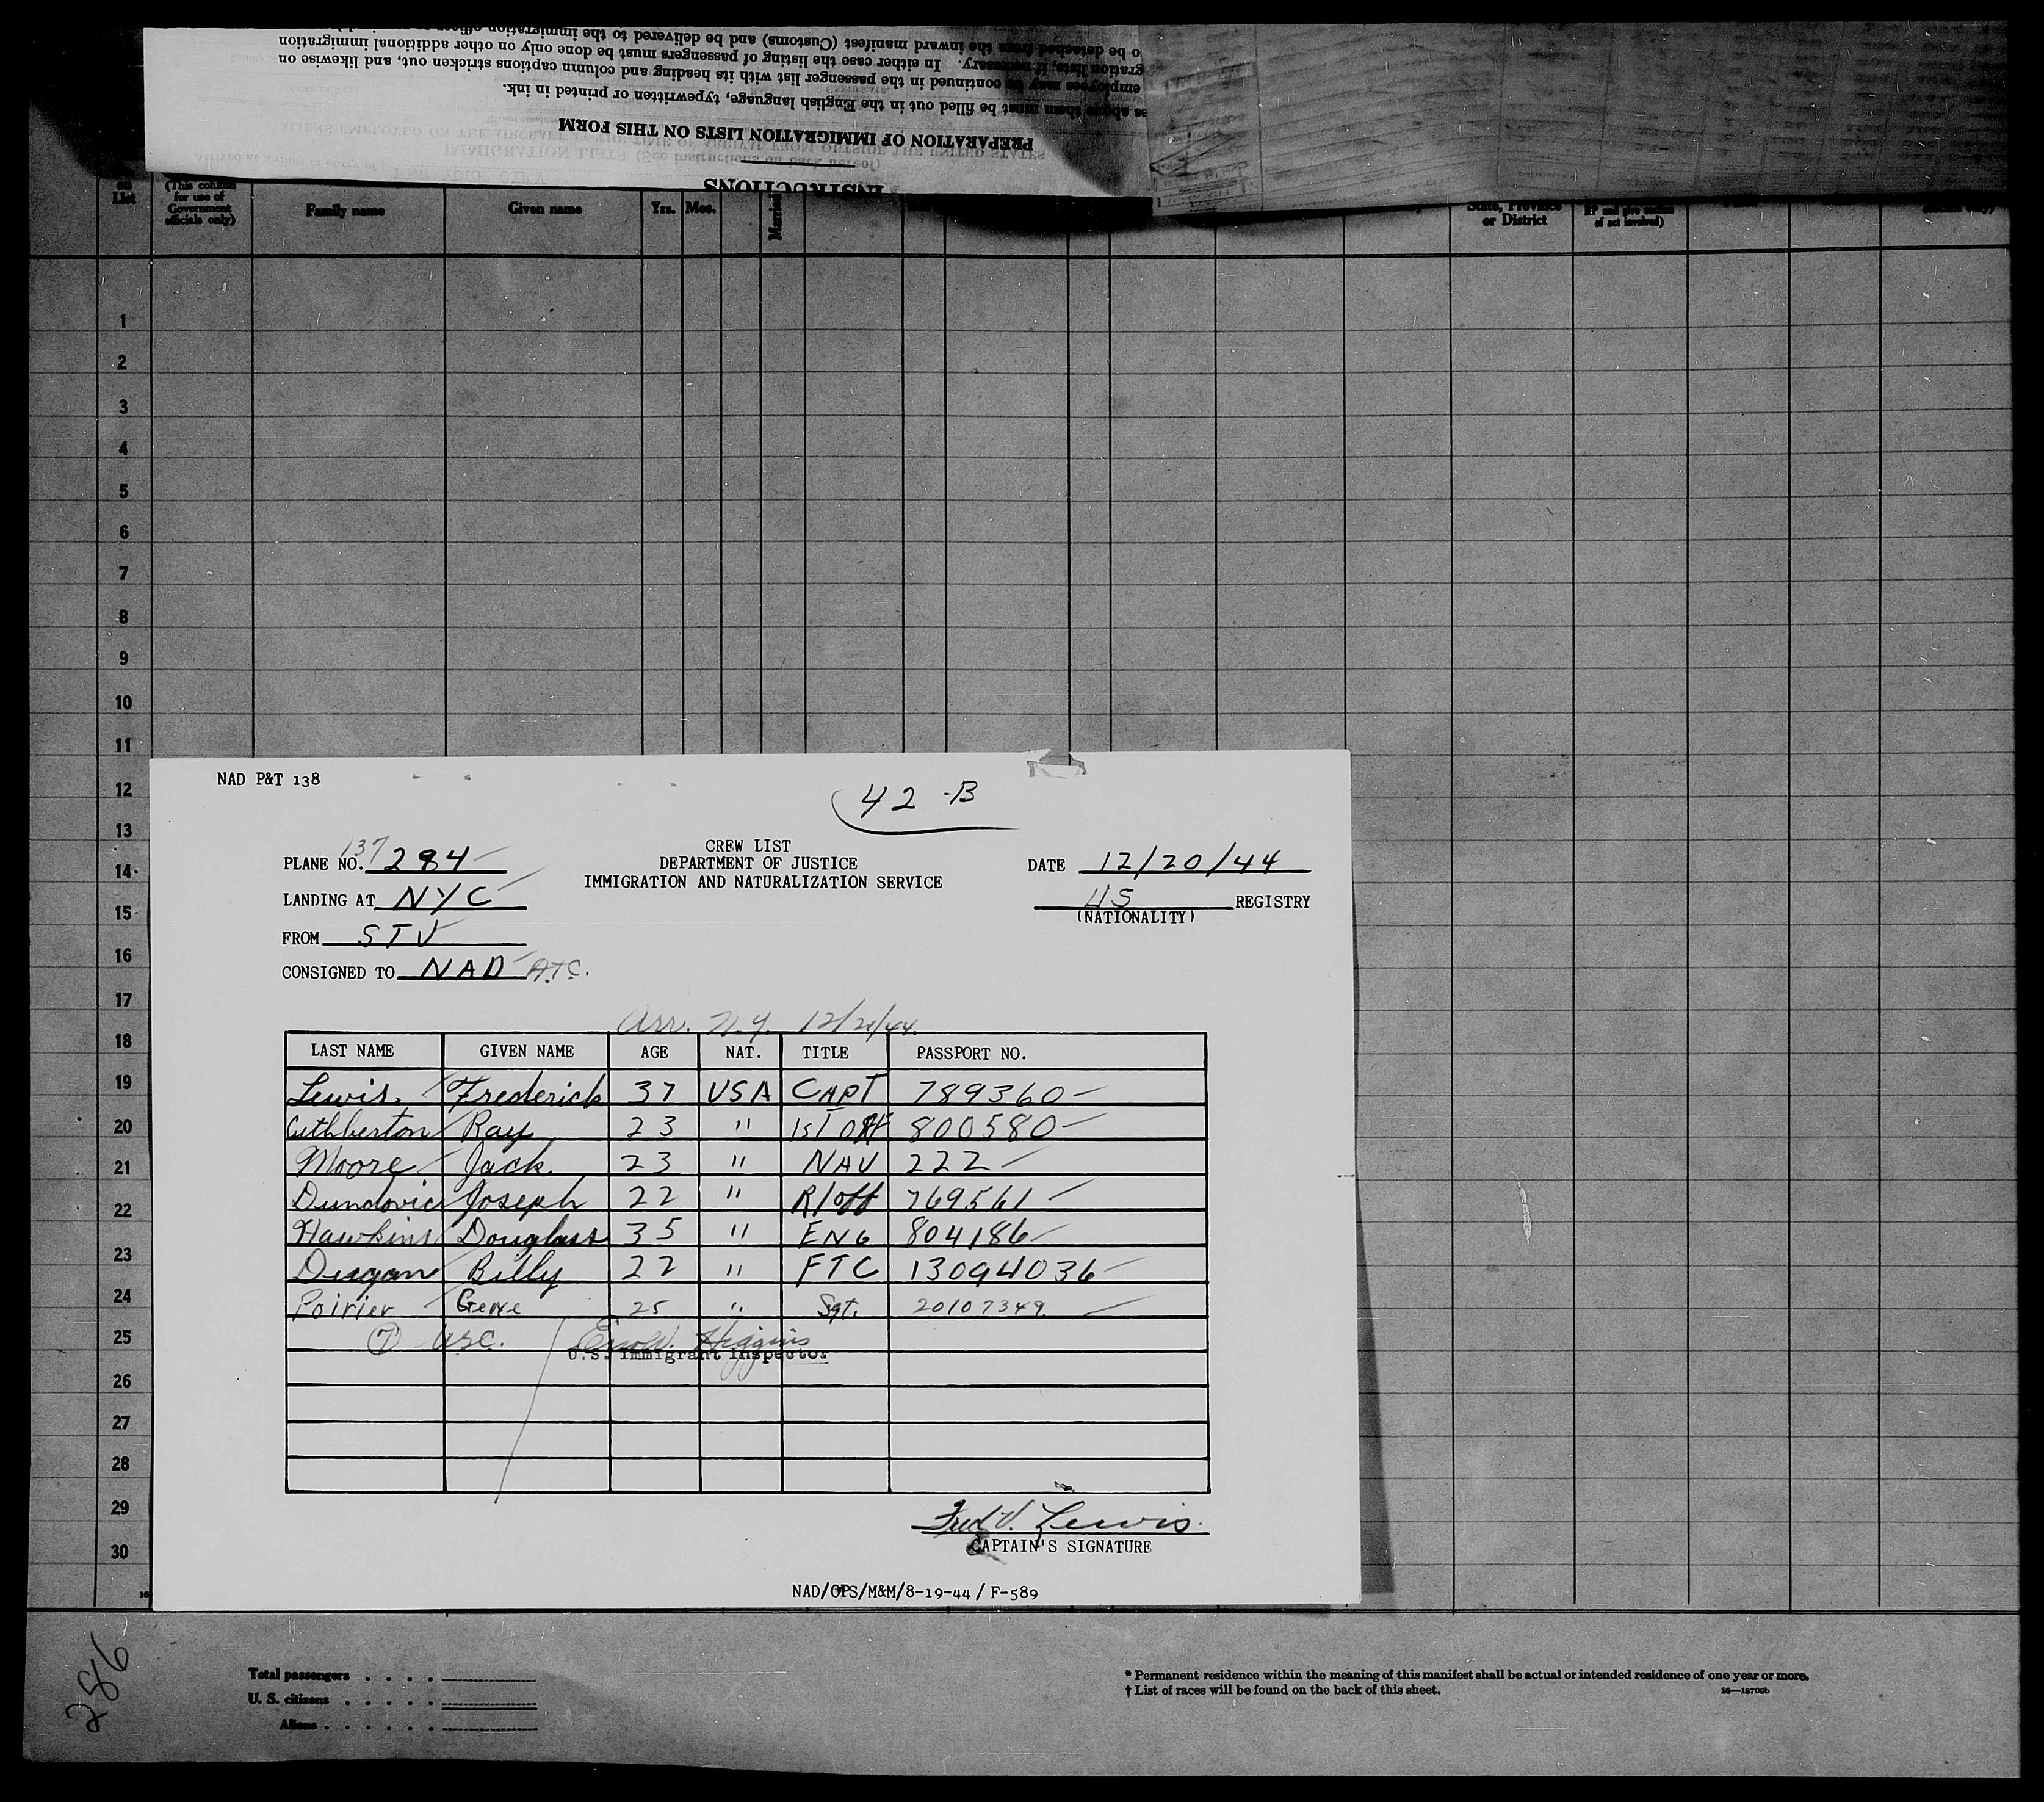 o be detached from the inward manifest (Customs) and be delivered to the immigration
gration lists, if necessary. In either case the listing of passengers must be done only on other additional immigration
employees may be continued in the passenger list with its heading and column captions stricken out, and likewise on
es above them must be filled out in the English language, typewritten or printed in ink.
PREPARATION OF IMMIGRATION LISTS ON THIS FORM
INSTRUCTIONS
on List
(This column for use of Government officials only)
Family name
Given name
Yrs.
Mos.
Married
State, Province or District
of act involved)
1
2
3
4
5
6
7
8
9
10
11
12
13
14
15
16
17
18
19
20
21
22
23
24
25
26
27
28
29
30
NAD P&T 138
42-B
137
PLANE NO. 284
CREW LIST
DEPARTMENT OF JUSTICE
IMMIGRATION AND NATURALIZATION SERVICE
DATE 12/20/44
LANDING AT NYC
US REGISTRY
(NATIONALITY)
FROM STV
CONSIGNED TO NAD A.T.C.
Arr. N.Y. 12/21/44
LAST NAME GIVEN NAME AGE NAT. TITLE PASSPORT NO.
Lewis Frederick 37 USA CAPT 789360
Cuthberton Ray 23 " 1st Off 800580
Moore Jack 23 " NAV 222
Dundovic Joseph 22 " R/off 769561
Hawkins Douglass 35 " ENG 804186
Dugan Billy 22 " FTC 13094036
Poirier Gene 25 " Sgt. 20107349.
(7) USC. Higgins
U.S. Immigrant Inspector
Fred V. Lewis
CAPTAIN'S SIGNATURE
NAD/OPS/M&M/8-19-44 / F-589
286
Total passengers . . . .
U. S. citizens . . . . .
Aliens . . . . . .
* Permanent residence within the meaning of this manifest shall be actual or intended residence of one year or more.
† List of races will be found on the back of this sheet.
16—18709b